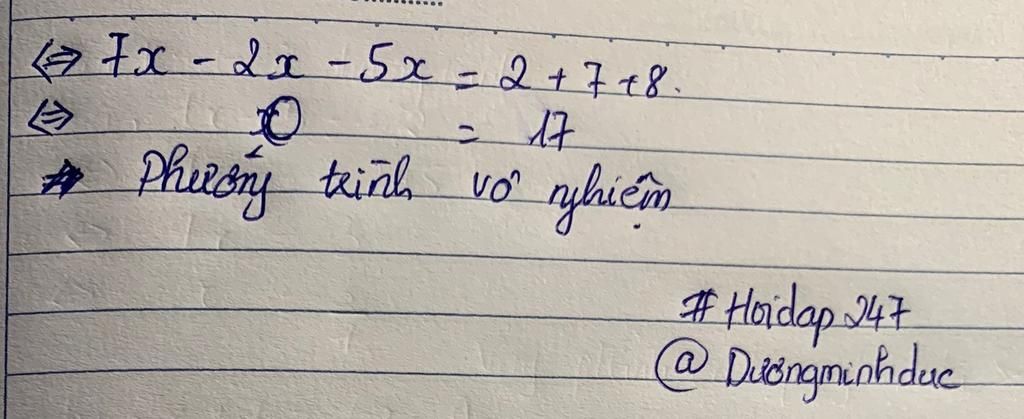 ⇔ 7x - 2x - 5x = 2 + 7 + 8.
⇔ 0 = 17
Phương trình vô nghiệm
# Hoidap 247
@ Dươngminhduc